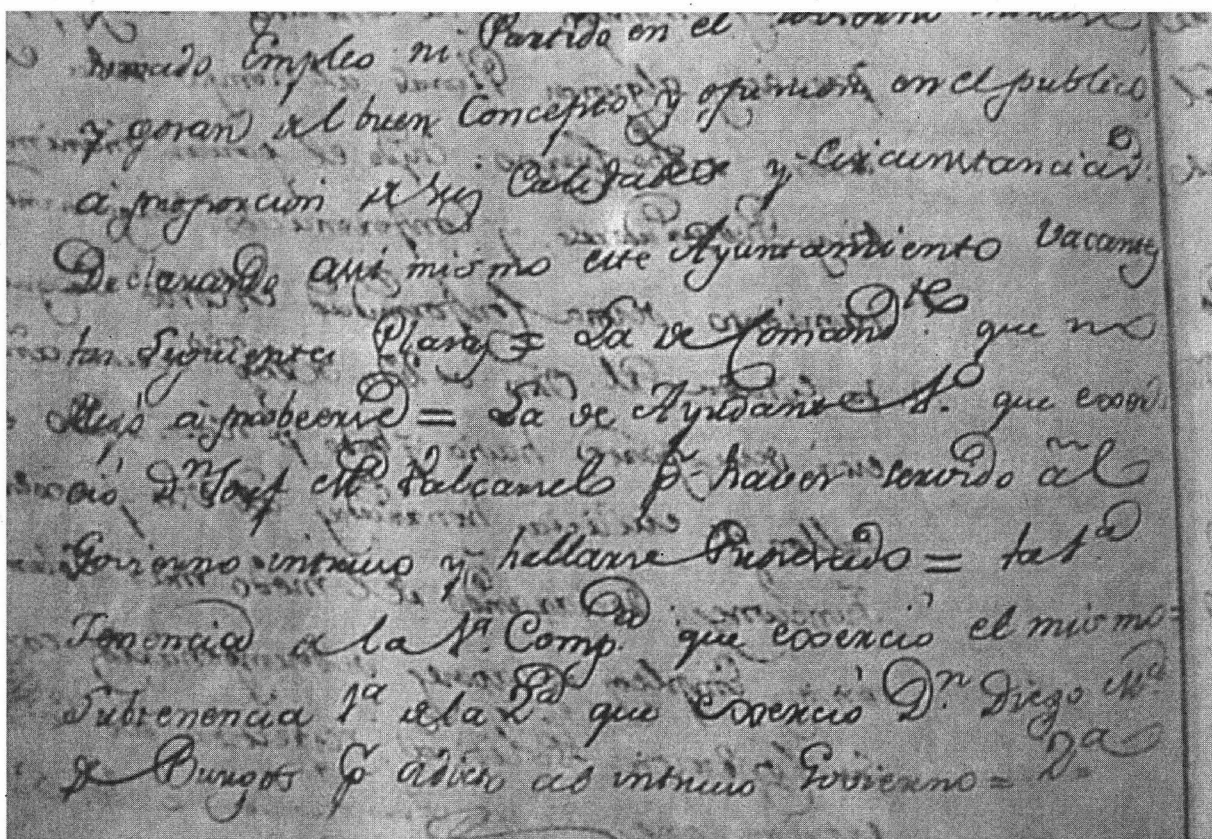 tomado Empleo ni Partido en el
y goran del buen Concepto y opinion en el publico
a proporcion de sus Calidades y Circunstancias.
Declarando asi mismo este Ayuntamiento Vacantes
las siguientes Plazas = La de Comand.te que no
llegó a probeerse = La de Ayudante 1.o que exer-
ció D.n Josef M.a Valcarcel p.r haver servido al
Govierno intruso y hallarse = la 1.a
Tenencia de la 1.a Comp.a que exerció el mismo =
Subtenencia 1.a de la 2.a que exerció D.n Diego M.a
de Burgos p.r adicto al intruso Govierno = 2.a